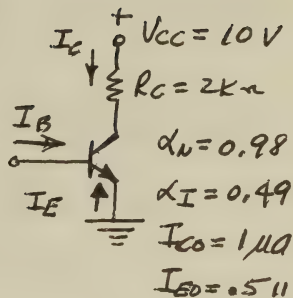 +
I_C
V_CC = 10 V
R_C = 2K Ω
I_B
α_N = 0.98
α_I = 0.49
I_E
I_CO = 1 μa
I_EO = .5 μ